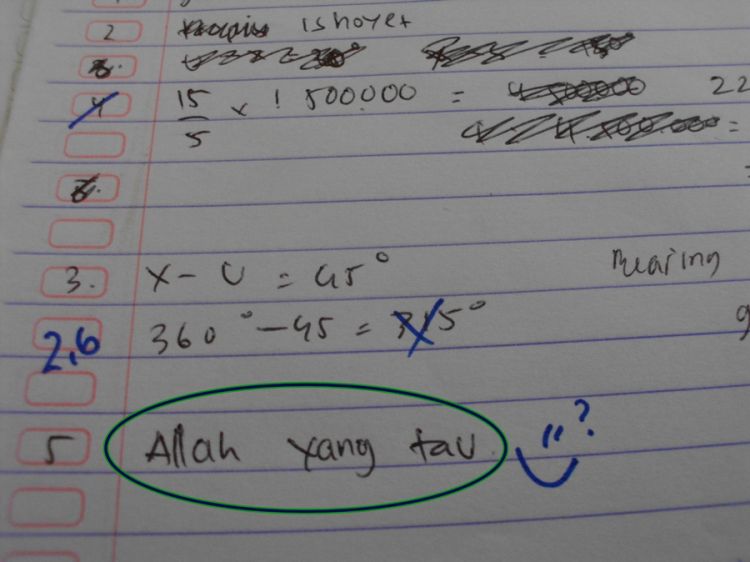 2 Ishoyet
4 15/5 x 1 500.000 = 22
=
3. X - U = 45° Bearing
2,6 360° - 45 = 315° 9
5 Allah yang tau "?